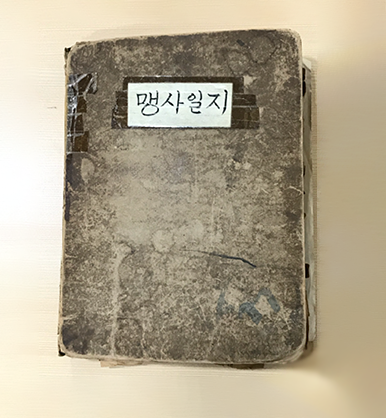 맹사일지